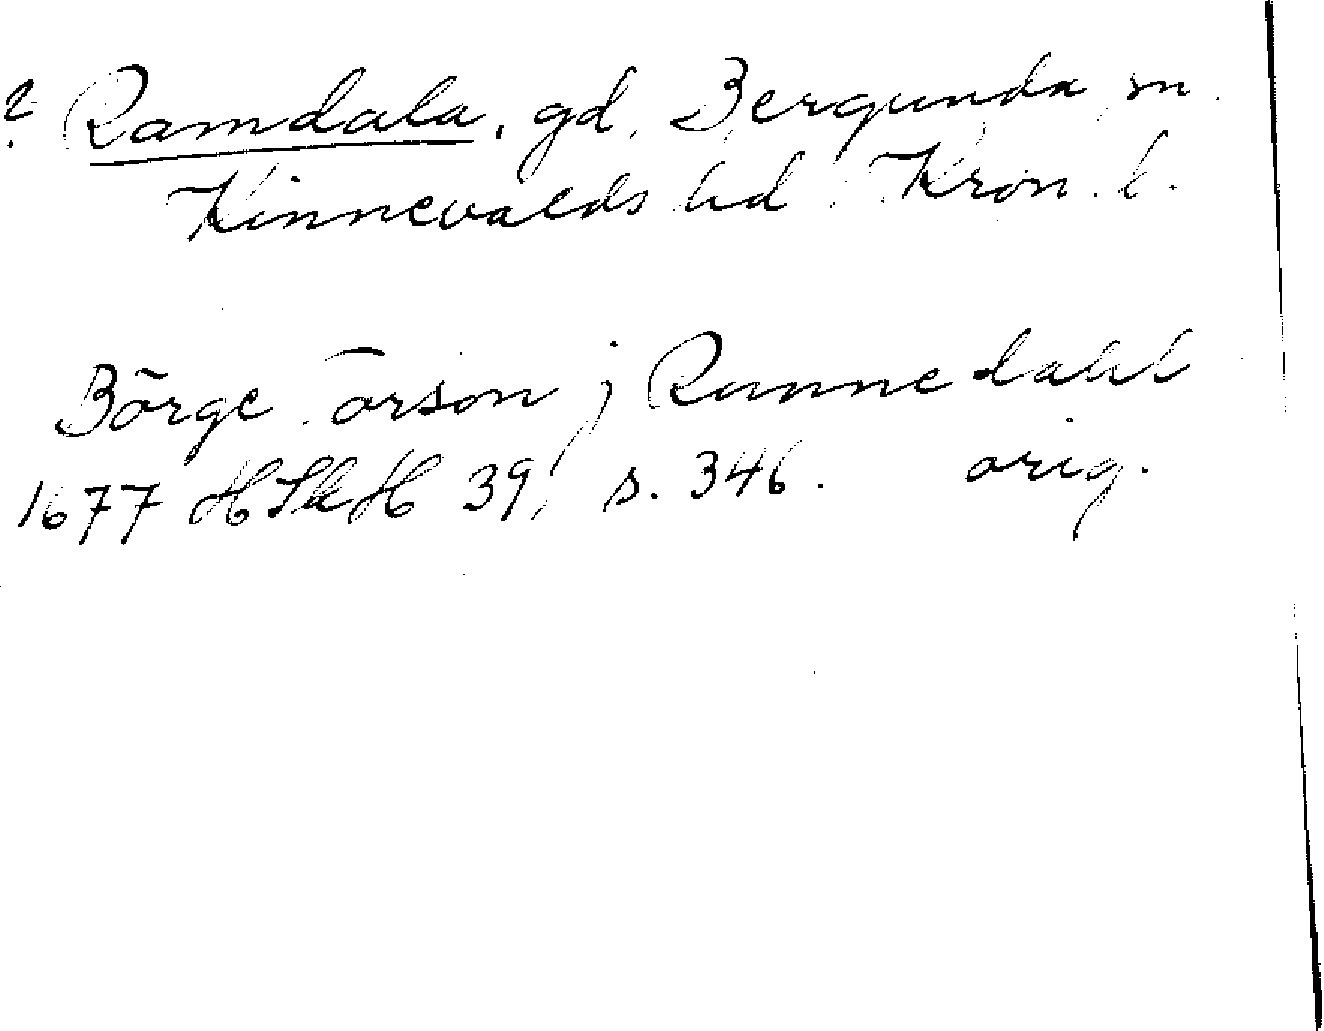 ? Ramdala, gd, Bergunda sn
Kinnevalds hd. Kron. l.
Bōrge ōrson j Rannedahl
1677 HSkH 39, s. 346. orig.